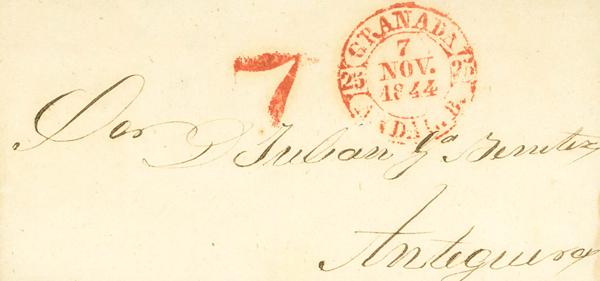 GRANADA
7
NOV.
1844
ANDAL. B.
7
Sor D Julian Gª Benitez
Antequera